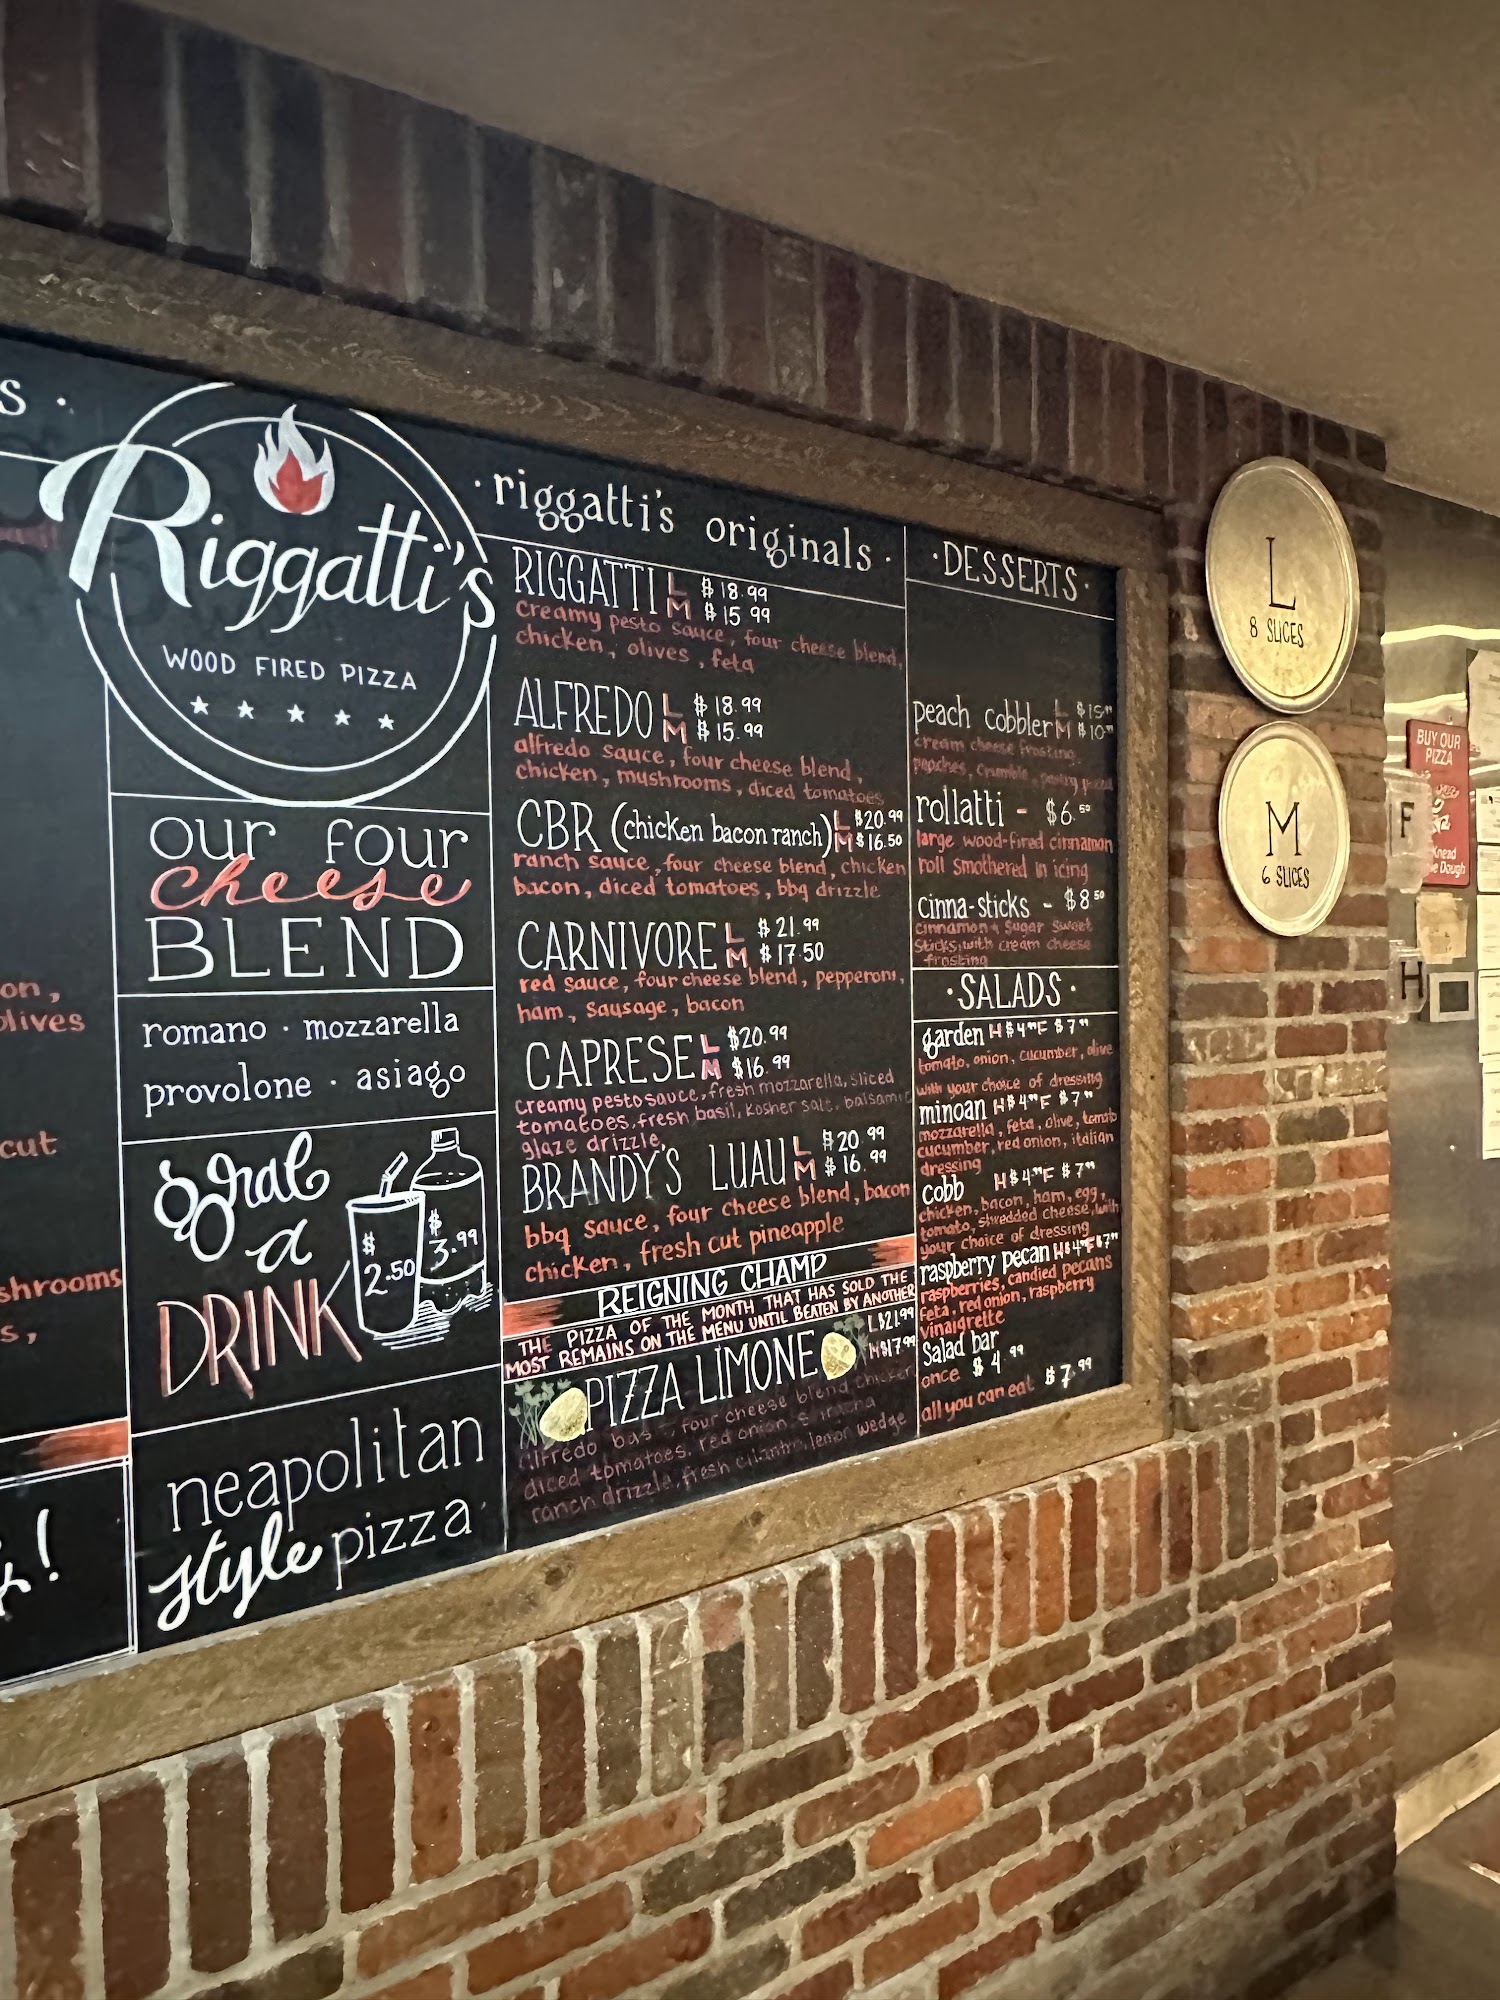 s ·
on,
olives
cut
shrooms
s,
!
Riggatti's
WOOD FIRED PIZZA
our four
cheese
BLEND
romano · mozzarella
provolone · asiago
grab
a
DRINK
$ 2.50
$ 3.99
neapolitan
style pizza
· riggatti's originals ·
RIGGATTI L $18.99
M $15.99
creamy pesto sauce, four cheese blend,
chicken, olives, feta
ALFREDO L $18.99
M $15.99
alfredo sauce, four cheese blend,
chicken, mushrooms, diced tomatoes
CBR (chicken bacon ranch) L $20.99
M $16.50
ranch sauce, four cheese blend, chicken
bacon, diced tomatoes, bbq drizzle
CARNIVORE L $21.99
M $17.50
red sauce, four cheese blend, pepperoni,
ham, sausage, bacon
CAPRESE L $20.99
M $16.99
creamy pesto sauce, fresh mozzarella, sliced
tomatoes, fresh basil, kosher salt, balsamic
glaze drizzle,
BRANDY'S LUAU L $20.99
M $16.99
bbq sauce, four cheese blend, bacon
chicken, fresh cut pineapple
REIGNING CHAMP
THE PIZZA OF THE MONTH THAT HAS SOLD THE
MOST REMAINS ON THE MENU UNTIL BEATEN BY ANOTHER
PIZZA LIMONE L $21.99
M $17.99
alfredo four cheese blend chicken
diced tomatoes, red onion
ranch drizzle, fresh cilantro, lemon wedge
· DESSERTS ·
peach cobbler L $15
M $10
cream cheese frosting,
peaches, crumble,
rollatti - $6.50
large wood-fired cinnamon
roll smothered in icing
cinna-sticks - $8.50
cinnamon & sugar sweet
sticks, with cream cheese
frosting
· SALADS ·
garden H $4 F $7
tomato, onion, cucumber, olive
with your choice of dressing
minoan H $4 F $7
mozzarella, feta, olive, tomato
cucumber, red onion, italian
dressing
cobb H $4 F $7
chicken, bacon, ham, egg,
tomato, shredded cheese, with
your choice of dressing
raspberry pecan H $4 F $7
raspberries, candied pecans
feta, red onion, raspberry
vinaigrette
Salad bar
once $4.99
all you can eat $7.99
L
8 SLICES
M
6 SLICES
BUY OUR
PIZZA
Knead
Dough
F
H